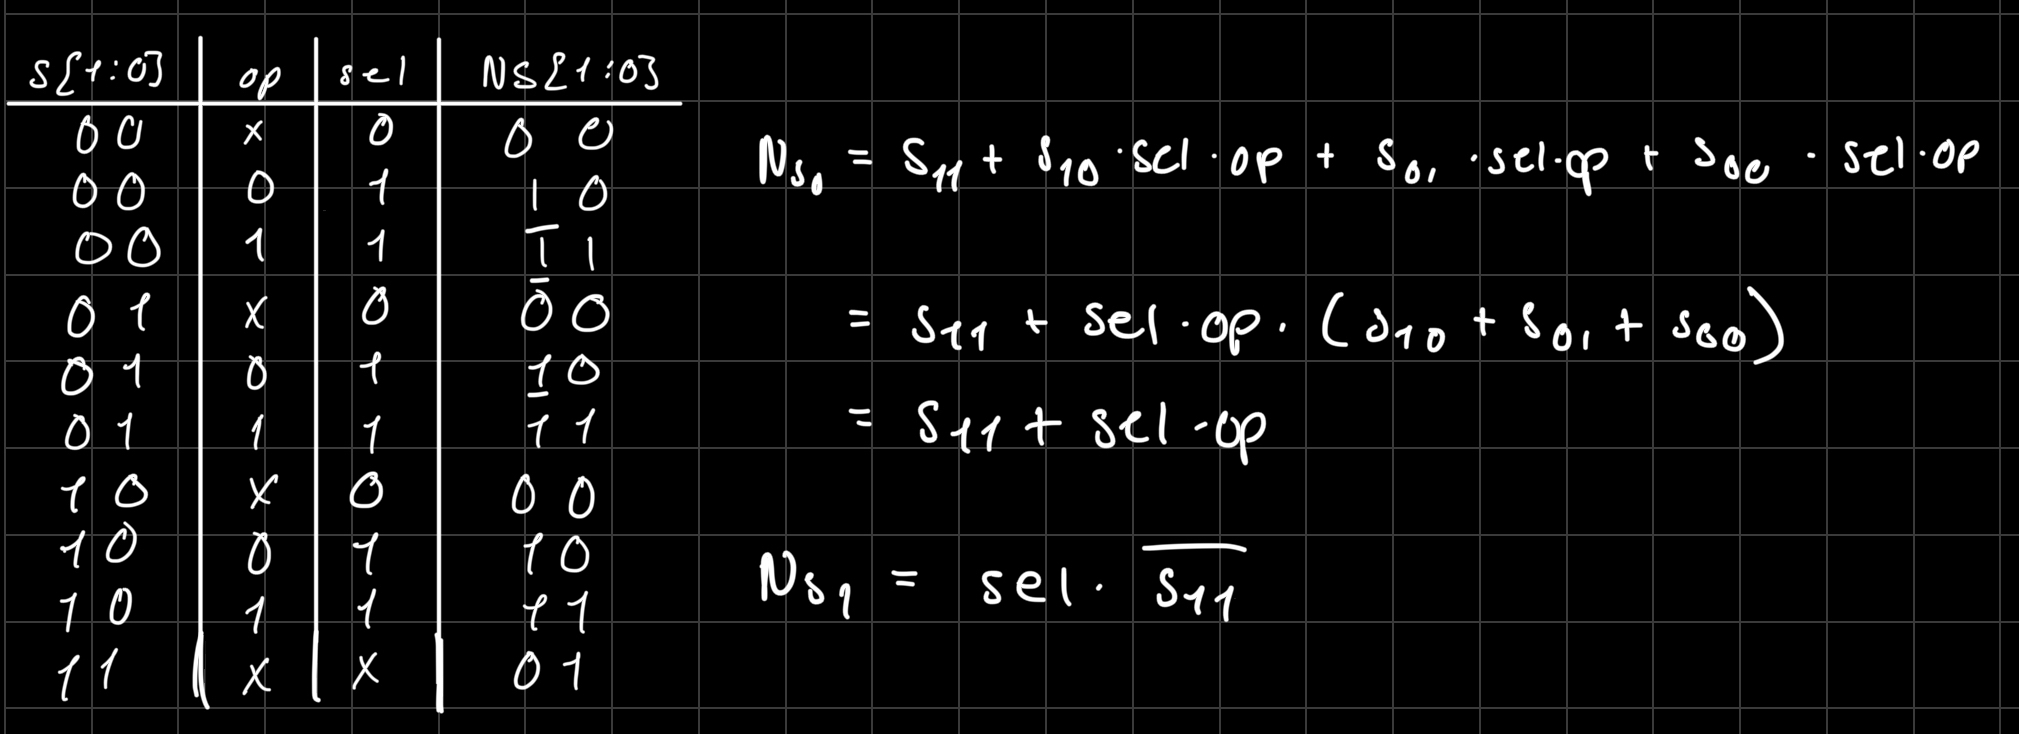 S[1:0] op sel NS[1:0]
00 x 0 00
00 0 1 10
00 1 1 11
01 x 0 00
01 0 1 10
01 1 1 11
10 x 0 00
10 0 1 10
10 1 1 11
11 x x 01
NS₀ = S₁₁ + S₁₀ · sel · op + S₀₁ · sel · op + S₀₀ · sel · op
= S₁₁ + sel · op · (S₁₀ + S₀₁ + S₀₀)
= S₁₁ + sel · op
NS₁ = sel · S̅₁̅₁̅